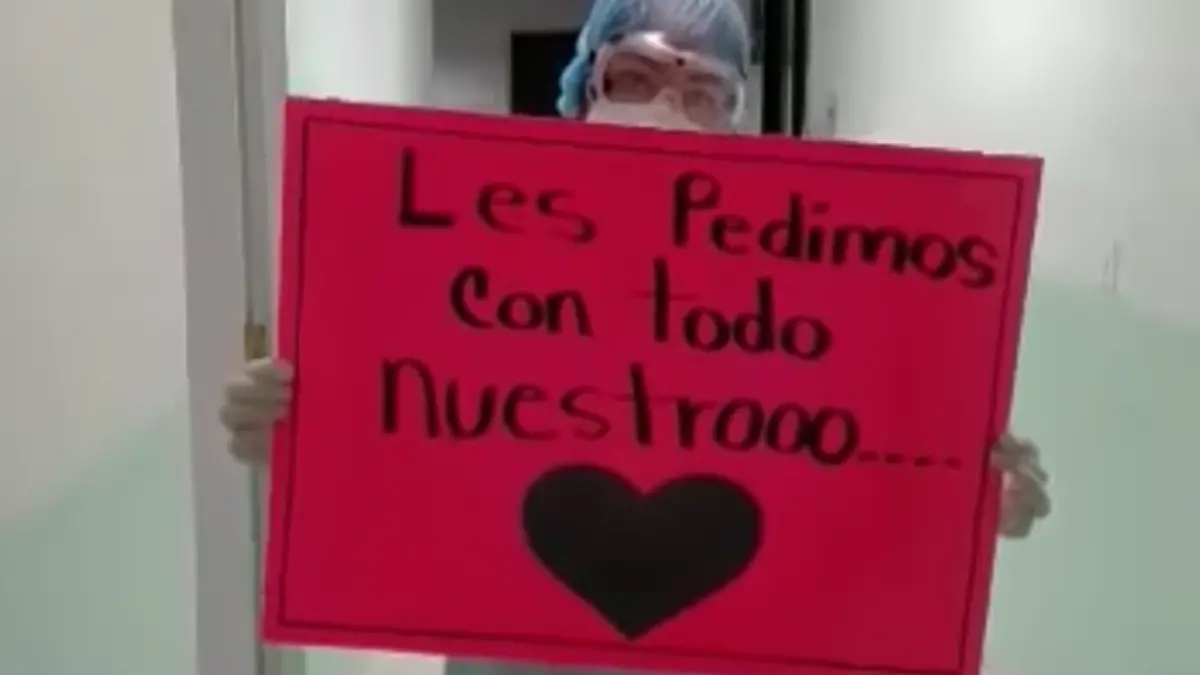 Les Pedimos
con todo
nuestrooo....